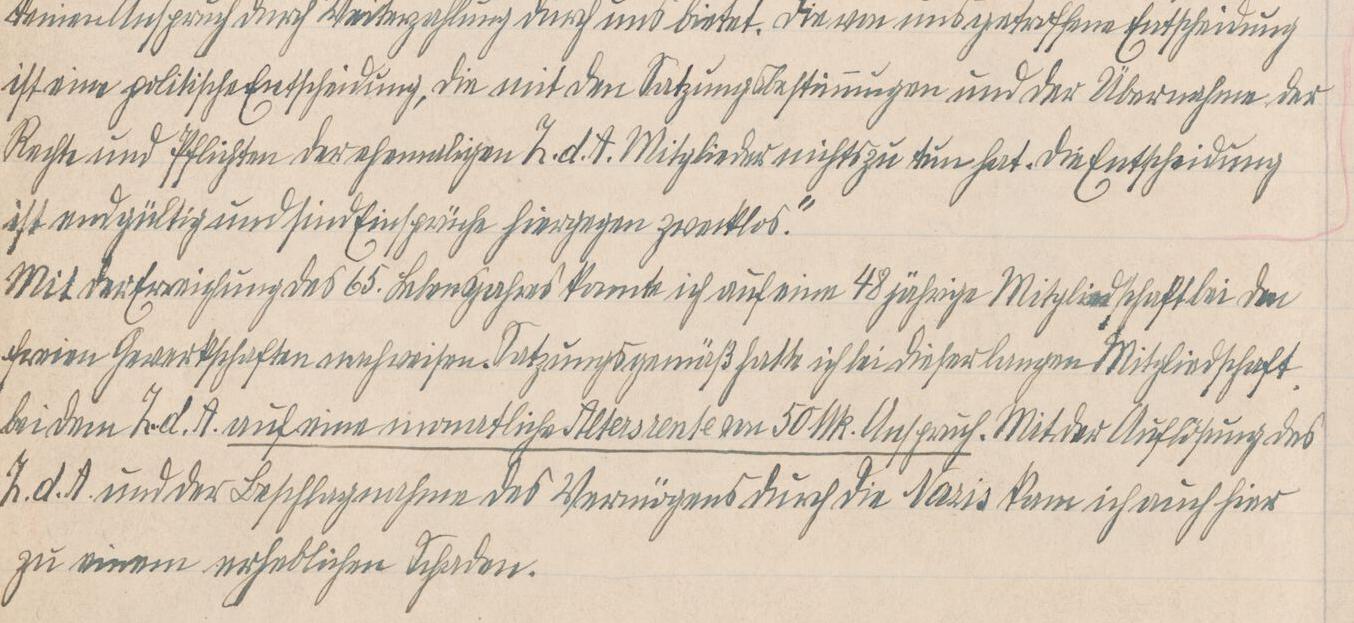 deinen Anspruch durch Weiterzahlung durch uns bietet. Die von uns getroffene Entscheidung
ist eine politische Entscheidung, die mit den Satzungsbestimmungen und der Übernahme der
Rechte und Pflichten der ehemaligen Z.d.A. Mitglieder nichts zu tun hat. Die Entscheidung
ist endgültig und sind Einsprüche hiergegen zwecklos."
Mit der Erreichung des 65. Lebensjahres konnte ich auf eine 48 jährige Mitgliedschaft bei den
freien Gewerkschaften nachweisen. Satzungsgemäß hatte ich bei dieser langen Mitgliedschaft
bei dem Z.d.A. auf eine monatliche Altersrente von 50 Mk. Anspruch. Mit der Auflösung des
Z.d.A und der Beschlagnahme des Vermögens durch die Nazis kam ich auch hier
zu einem erheblichen Schaden.